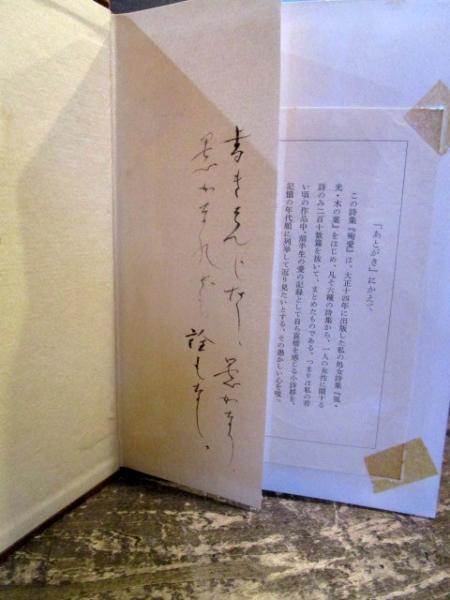 「あとがき」にかえて
この詩集『殉愛』は、大正十四年に出版した私の処女詩集『風・
光・木の葉』をはじめ、凡そ六種の詩集から、一人の女性に関する
詩のみ二百十数篇を抜いて、まとめたものである。つまりは私の若
い頃の作品中、前半生の愛の記録として自ら哀惜を感じる小詩群を、
記憶の年代順に列挙して返り見たいとする、その愚かしい心を嗤っ
書きそんじなり、愚かなり、
愚かなれども詮もなし。